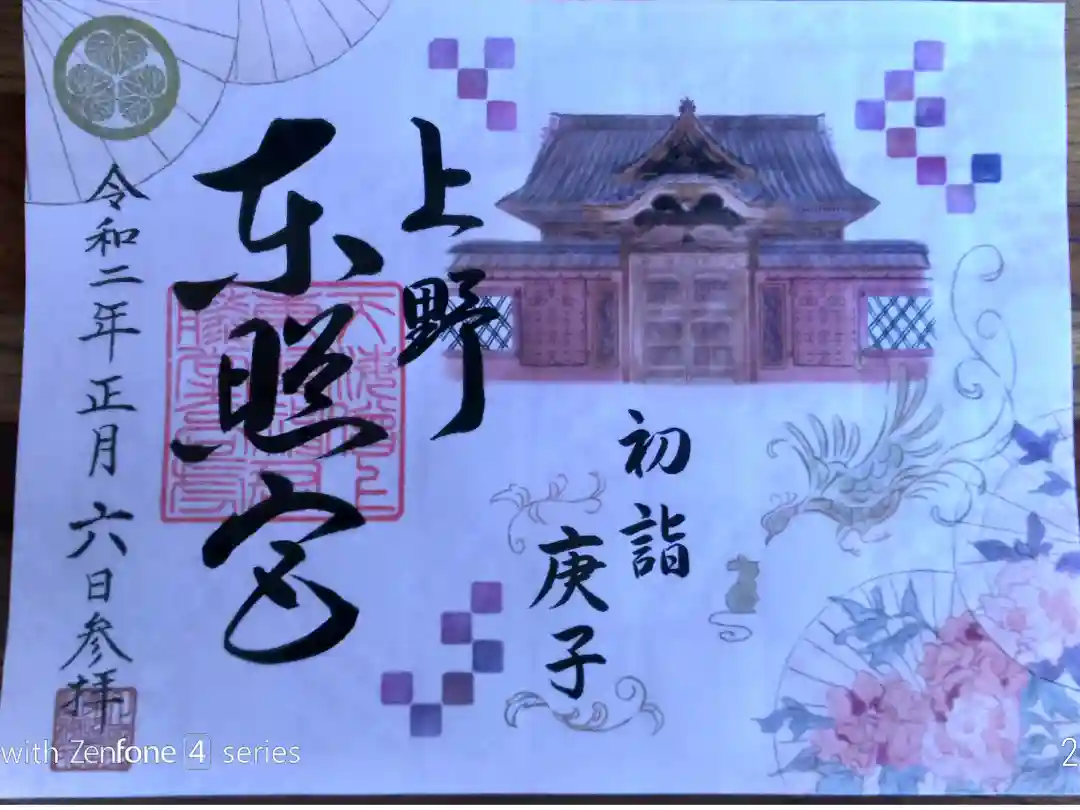 初詣
庚子
上野
東照宮
令和二年正月六日参拝
with Zenfone 4 series
2